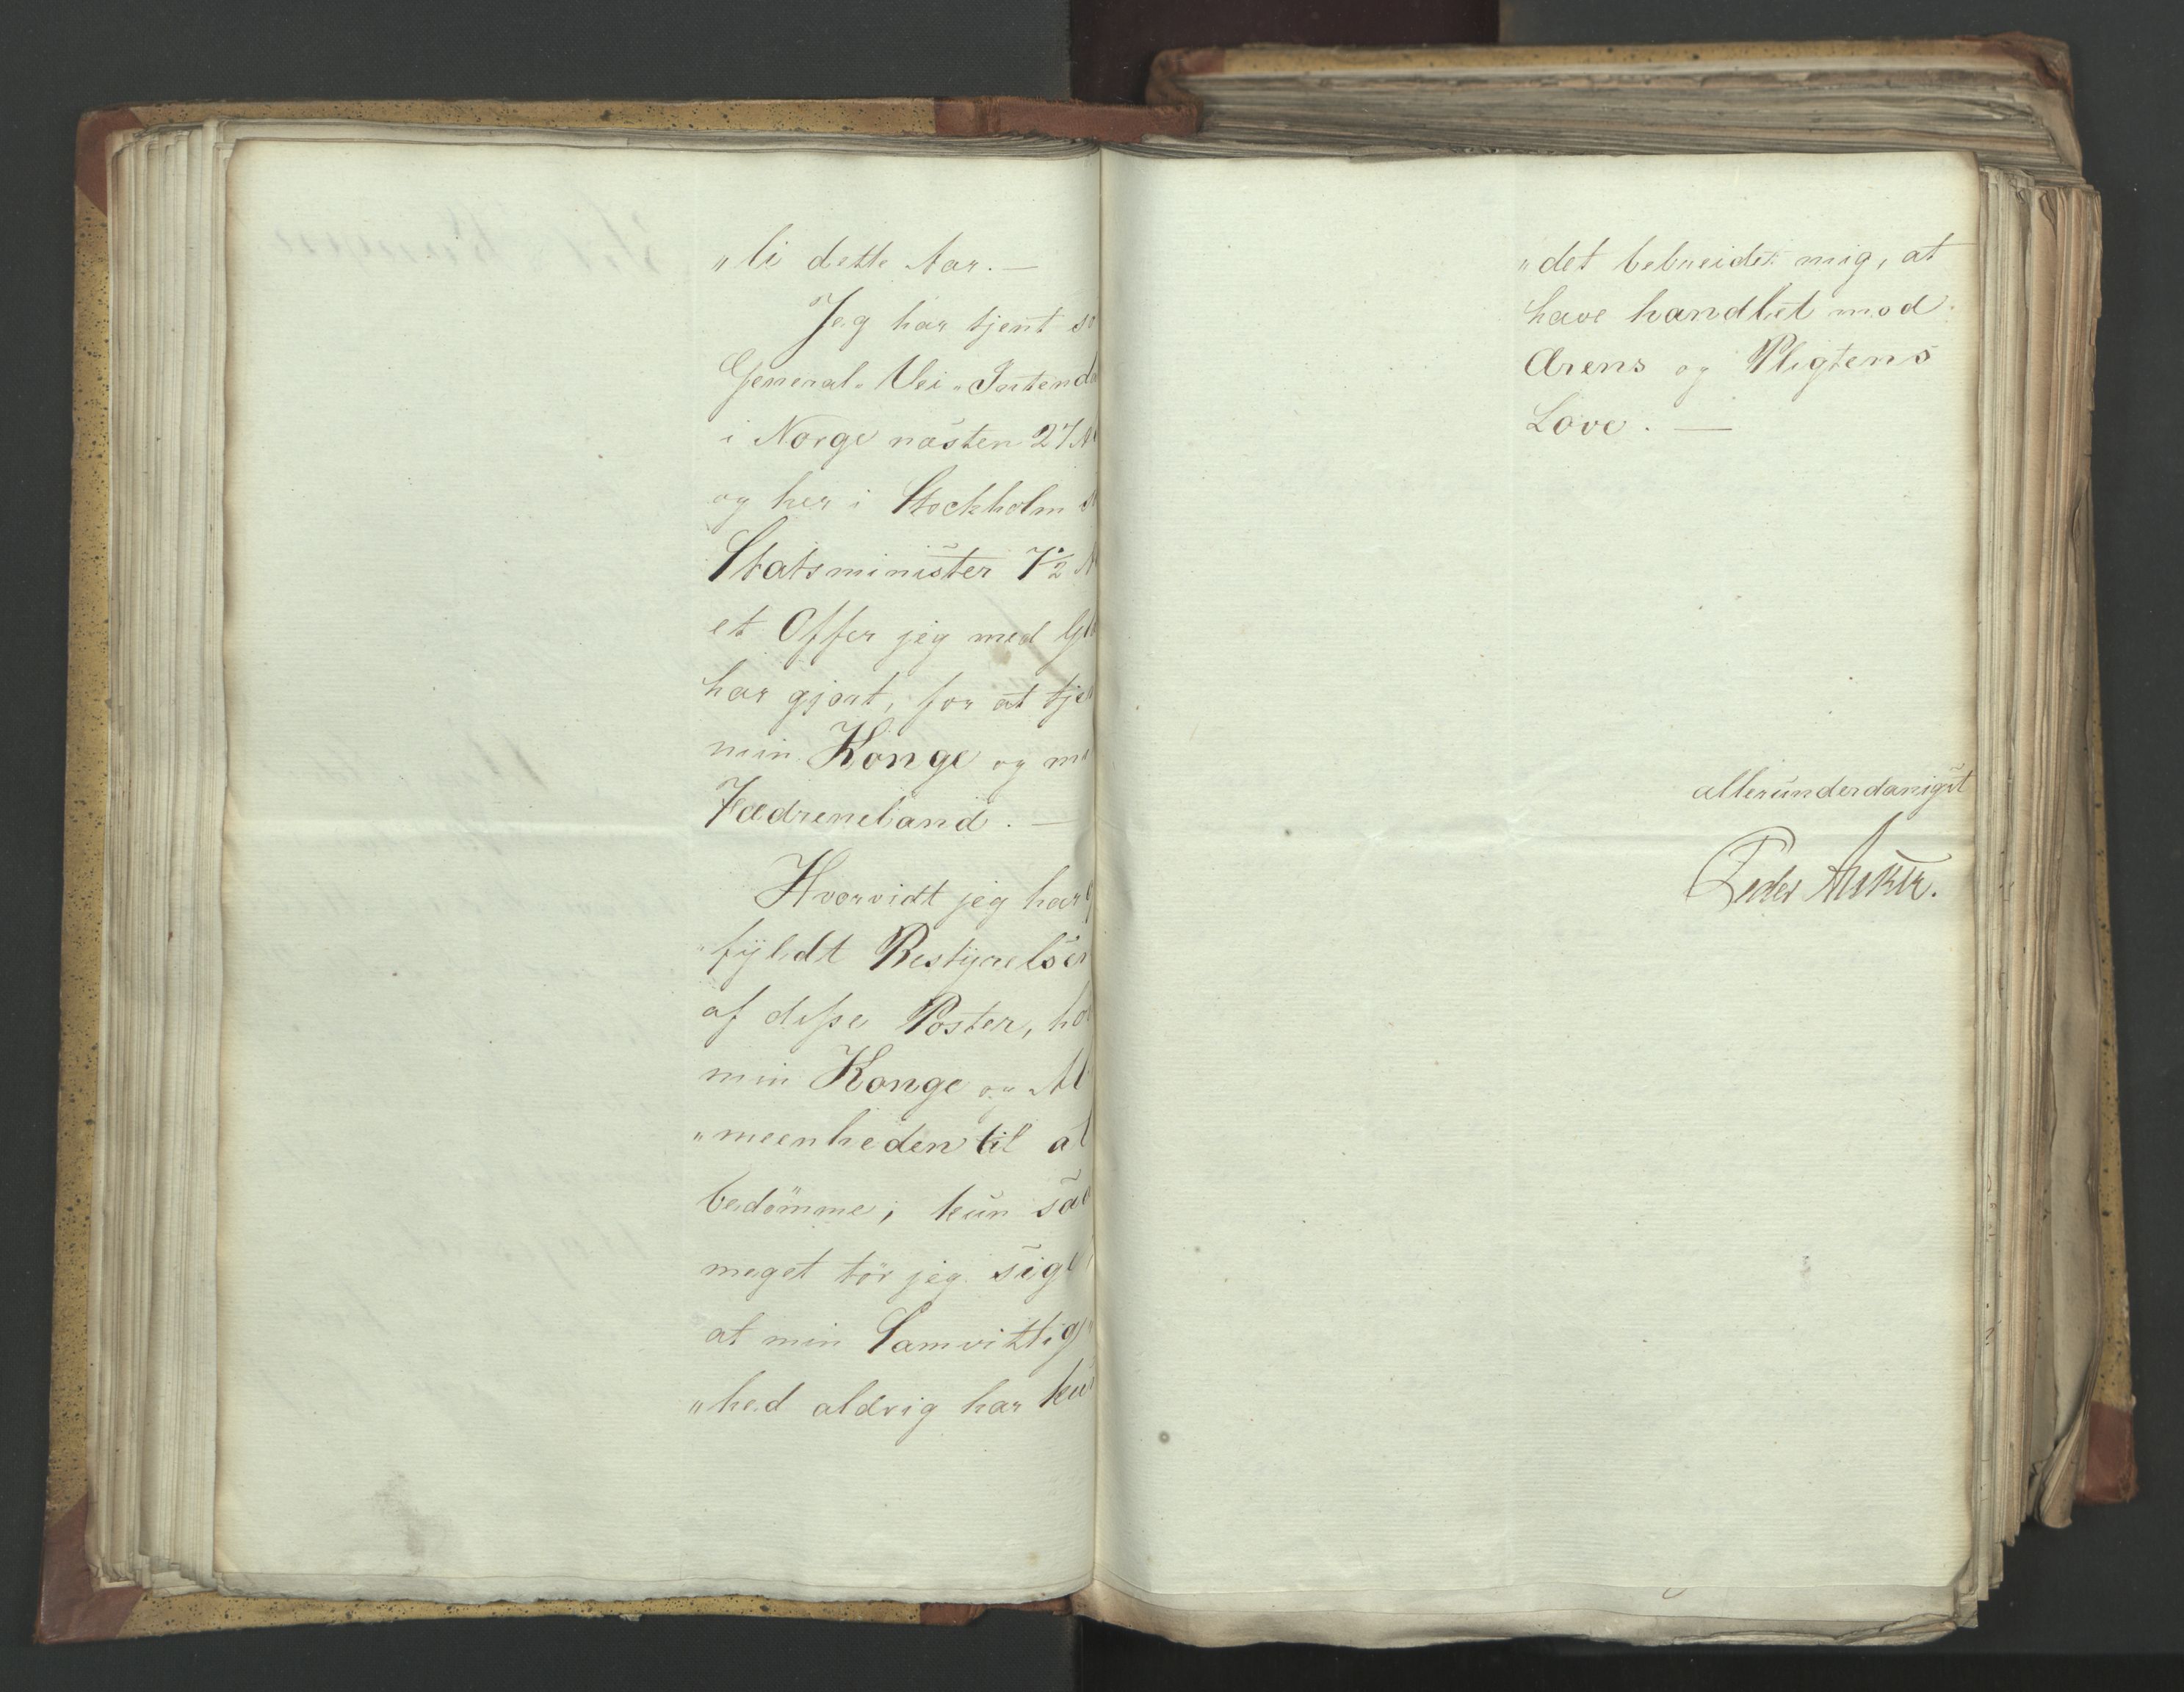 „li dette Aar. —
Jeg har tjent so
General-Vei-Intenda
i Norge næsten 27 A
og her i Stockholm
Statsminister 7½ A
et Offer jeg med Glæ
har gjort, for at tjen
min Konge og mi
Fædreneland. —
Hvorvidt jeg har
„fyldt Bestyrelsen
af disse Poster, ho
min Konge og Al
„meenheden til at
bedömme; kun saa
meget tör jeg sige
at min Samvittig„
„hed aldrig har kun
„det bebreidet mig, at
have handlet mod
Ærens og Pligtens
Love. —
allerunderdanigst
Peder Anker.